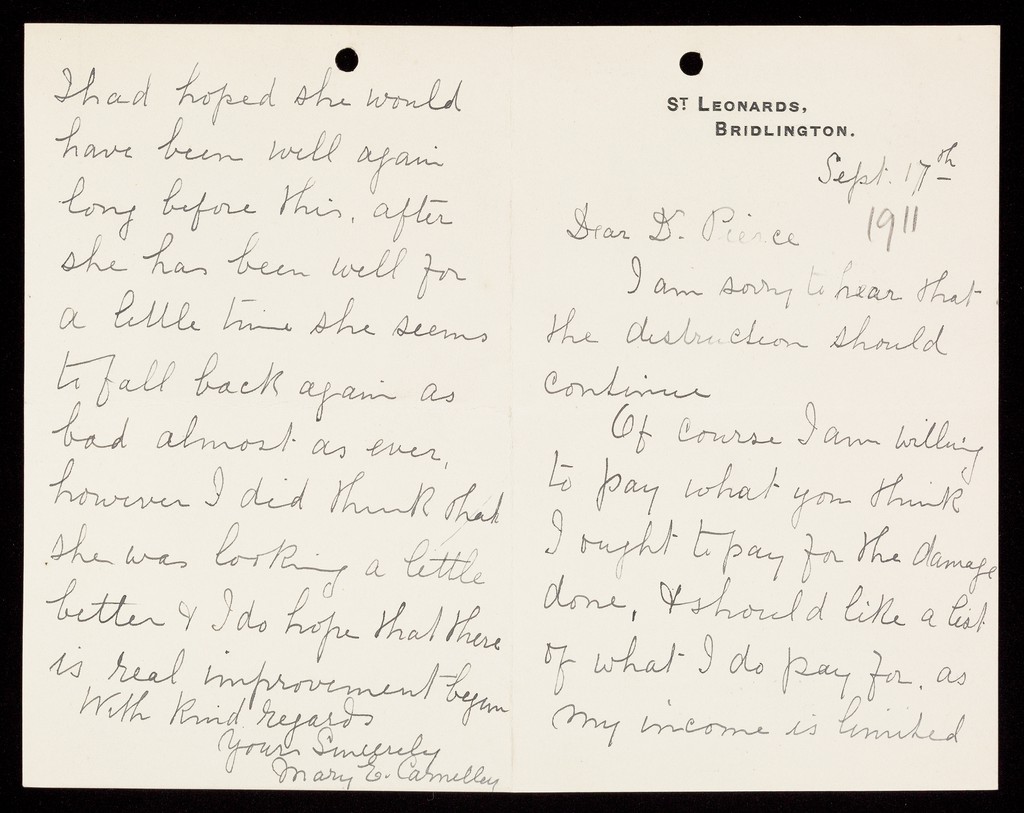 ST LEONARDS,
BRIDLINGTON.
Sept. 17th
1911
Dear Dr. Pierce
I am sorry to hear that
the destruction should
continue
Of course I am willing
to pay what you think
I ought to pay for the damage
done, & should like a list
of what I do pay for, as
my income is limited
I had hoped she would
have been well again
long before this, after
she has been well for
a little time she seems
to fall back again as
bad almost as ever,
however I did think that
she was looking a little
better & I do hope that there
is real improvement begun
With kind regards
Yours Sincerely
Mary E. Carnelley